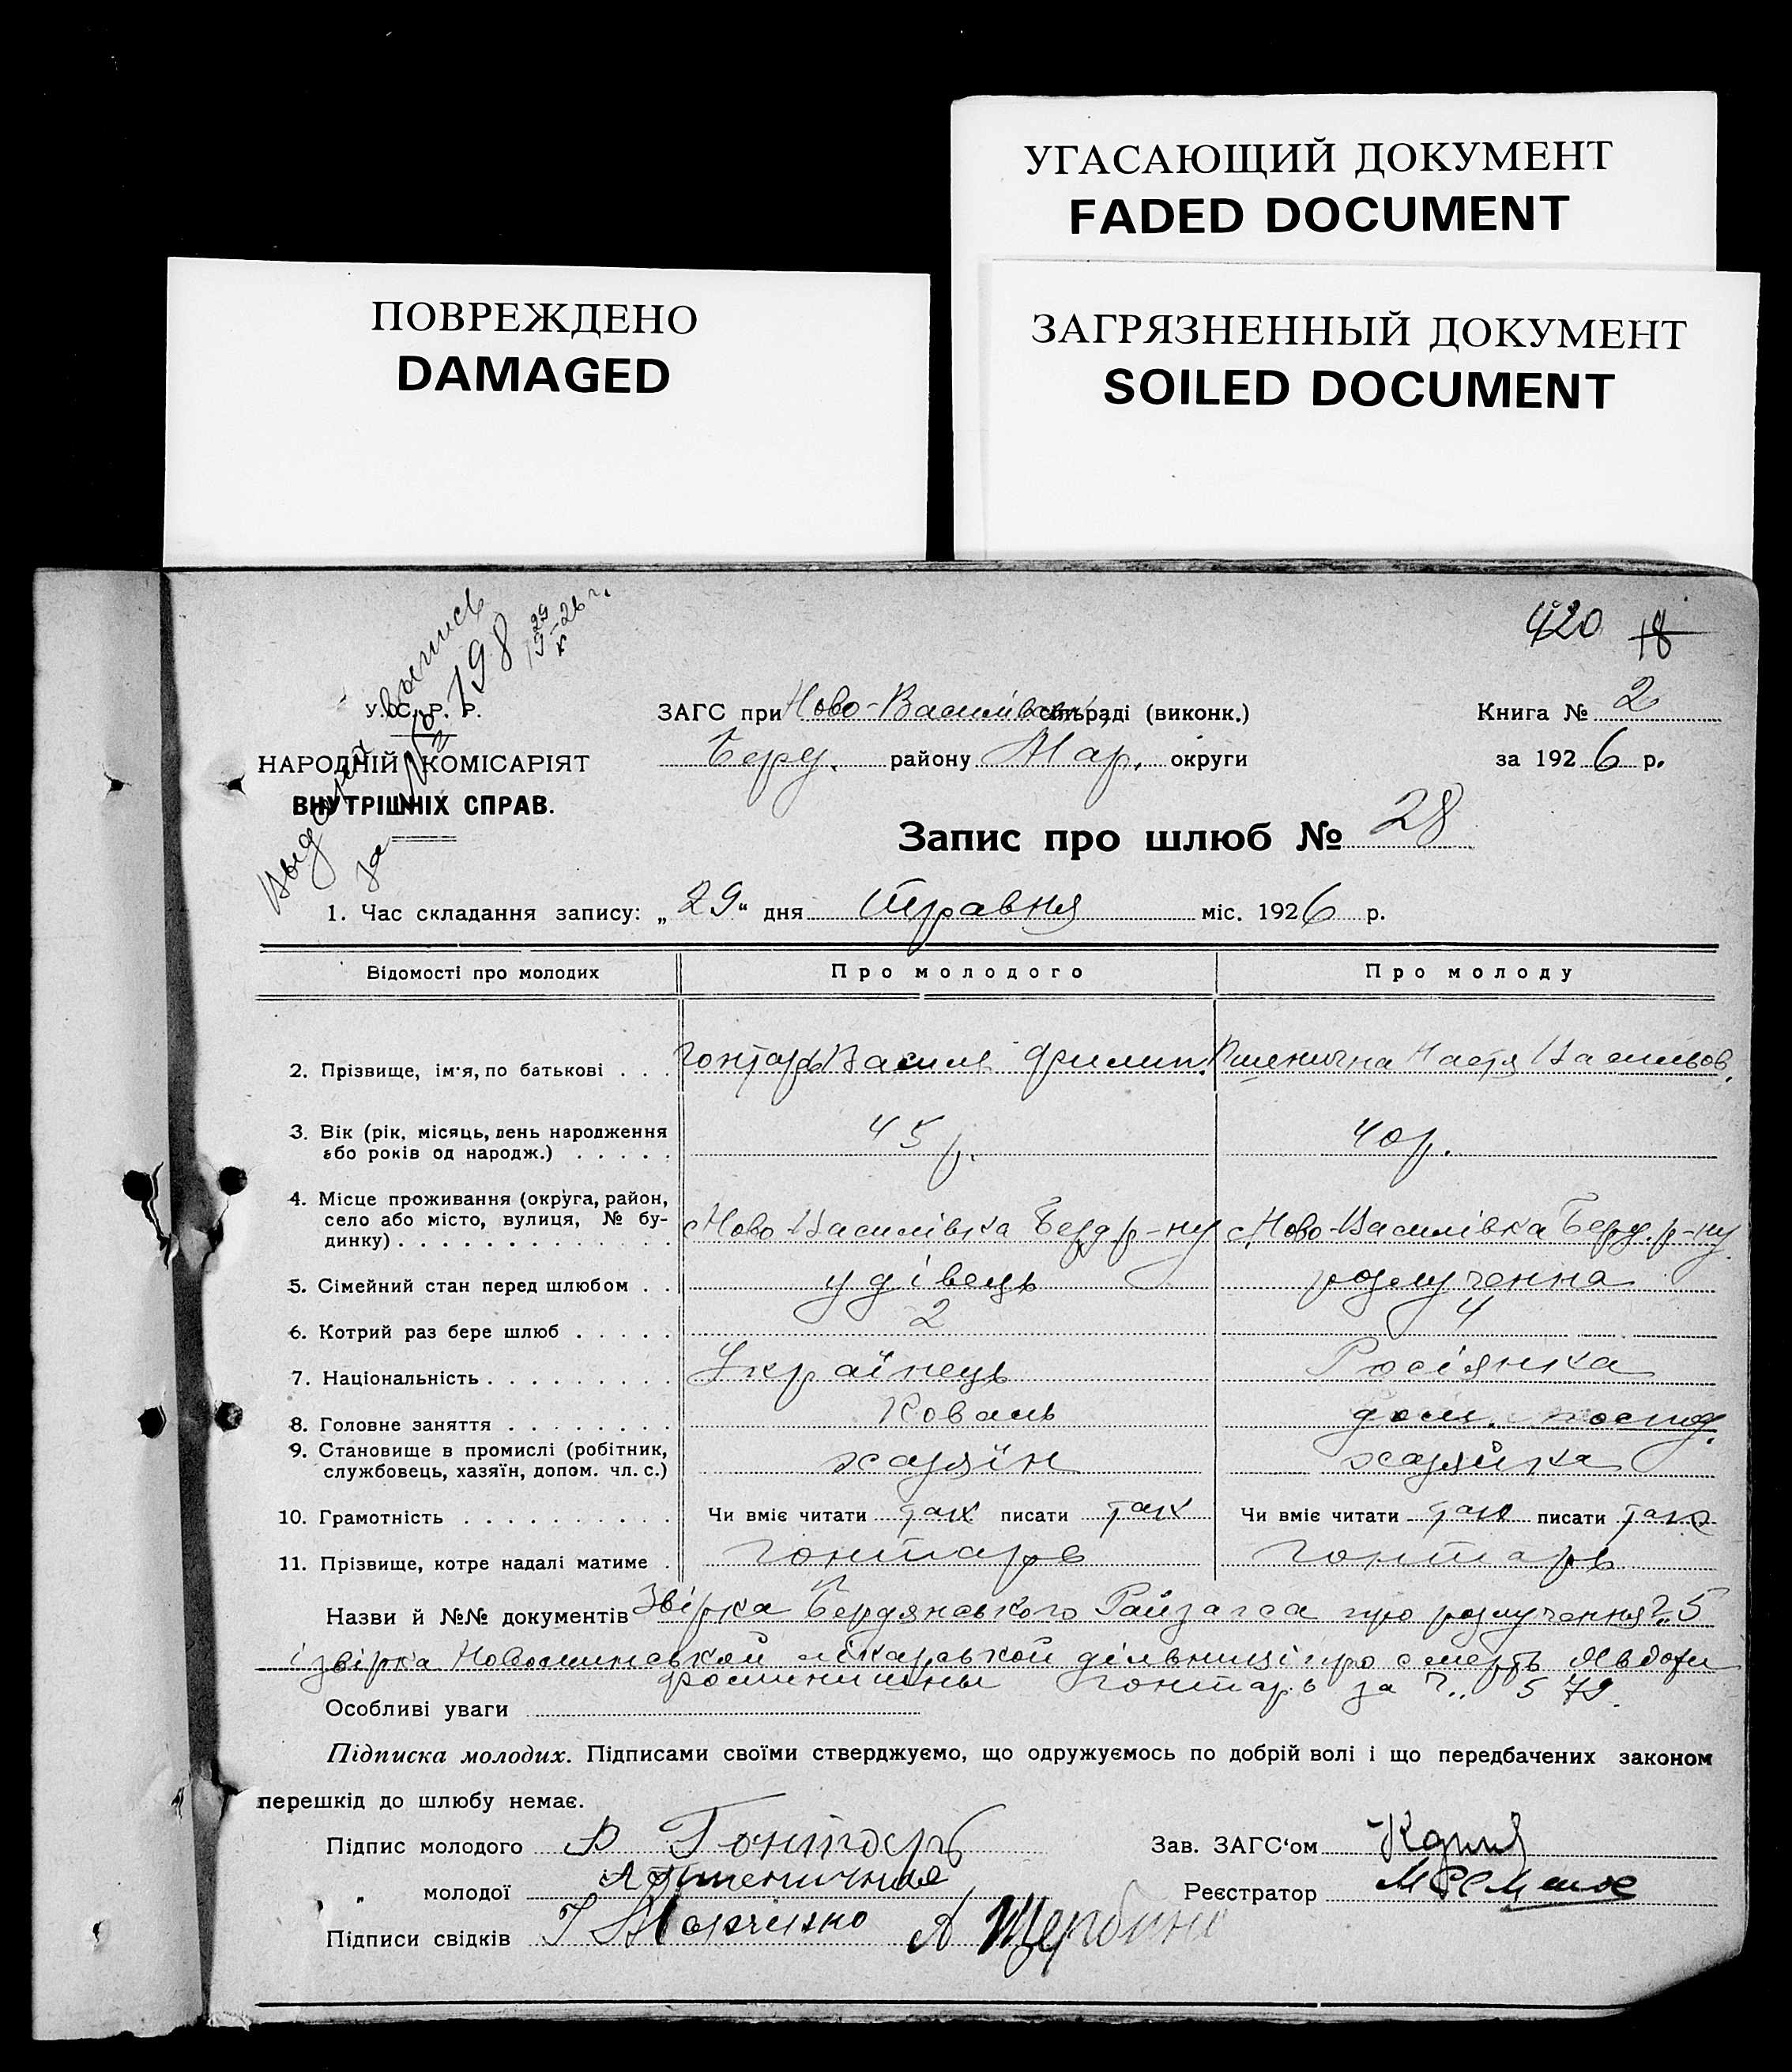 УГАСАЮЩИЙ ДОКУМЕНТ
FADED DOCUMENT
ПОВРЕЖДЕНО
DAMAGED
ЗАГРЯЗНЕННЫЙ ДОКУМЕНТ
SOILED DOCUMENT
420 18
выпись
за № 198
У. С. Р. Р.
НАРОДНІЙ КОМІСАРІЯТ
ВНУТРІШНІХ СПРАВ.
ЗАГС при Ново-Василівськ. сільраді (виконк.)
Берд. району Мар. округи
Книга № 2
за 1926 р.
Запис про шлюб № 28
1. Час складання запису: „29“ дня Травня міс. 1926 р.
Відомості про молодих Про молодого Про молоду
2. Прізвище, ім'я, по батькові . . . Гонтарь Василь Филип. Пшенична Настя Васильов.
3. Вік (рік, місяць, день народження
або років од народж.) . . . . . 45 р. 40 р.
4. Місце проживання (округа, район,
село або місто, вулиця, № бу-
динку) . . . . . . . . . . . . . . с Ново Василівка Берд. р-ну с. Ново-Василівка Берд. р-ну
5. Сімейний стан перед шлюбом . . удівець розлученна
6. Котрий раз бере шлюб . . . . . 2 4
7. Національність . . . . . . . . . Українець Росіянка
8. Головне заняття . . . . . . . . Коваль дом. господ.
9. Становище в промислі (робітник,
службовець, хазяїн, допом. чл. с.) хазяїн хазяйка
10. Грамотність . . . . . . . . . . Чи вміє читати так писати так Чи вміє читати так писати так
11. Прізвище, котре надалі матиме . Гонтарь Гонтарь
Назви й №№ документів Звірка Бердянського Райзагса про розлучення Ч. 5
і звірка Новоспинської лікарської дільниці про смерть Явдохи
Гонтарь за Ч. 579.
Особливі уваги
Підписка молодих. Підписами своїми стверджуємо, що одружуємось по добрій волі і що передбачених законом
перешкід до шлюбу немає.
Підпис молодого В Гонтарь
Зав. ЗАГС‘ом
„ молодої А Пшенична
Реєстратор
Підписи свідків А Щербина